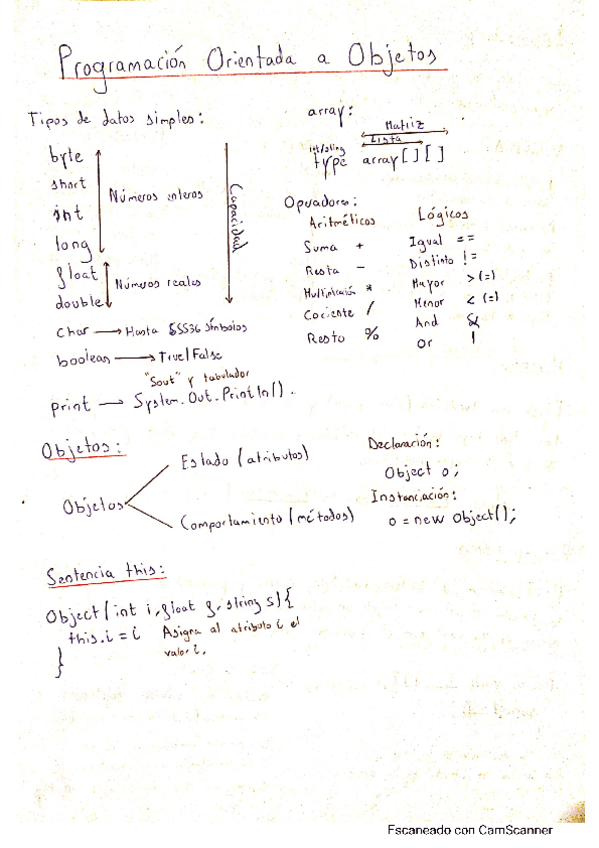 Programación Orientada a Objetos
Tipos de datos simples:
byte
short
int
long
Números enteros
float
double
Números reales
Capacidad
char → Hasta 65536 símbolos
boolean → True/False
"Sout" y tabulador
print → System.Out.Println().
array:
Matriz
Lista
int/string
type array[][]
Operadores:
Aritméticos
Suma +
Resta -
Multiplicación *
Cociente /
Resto %
Lógicos
Igual ==
Distinto !=
Mayor >(=)
Menor <(=)
And &
Or |
Objetos:
Objetos
Estado (atributos)
Comportamiento (métodos)
Declaración:
Object o;
Instanciación:
o = new Object();
Sentencia this:
Object(int i, float f, string s){
this.i = i Asigna al atributo i el
valor i.
}
Escaneado con CamScanner